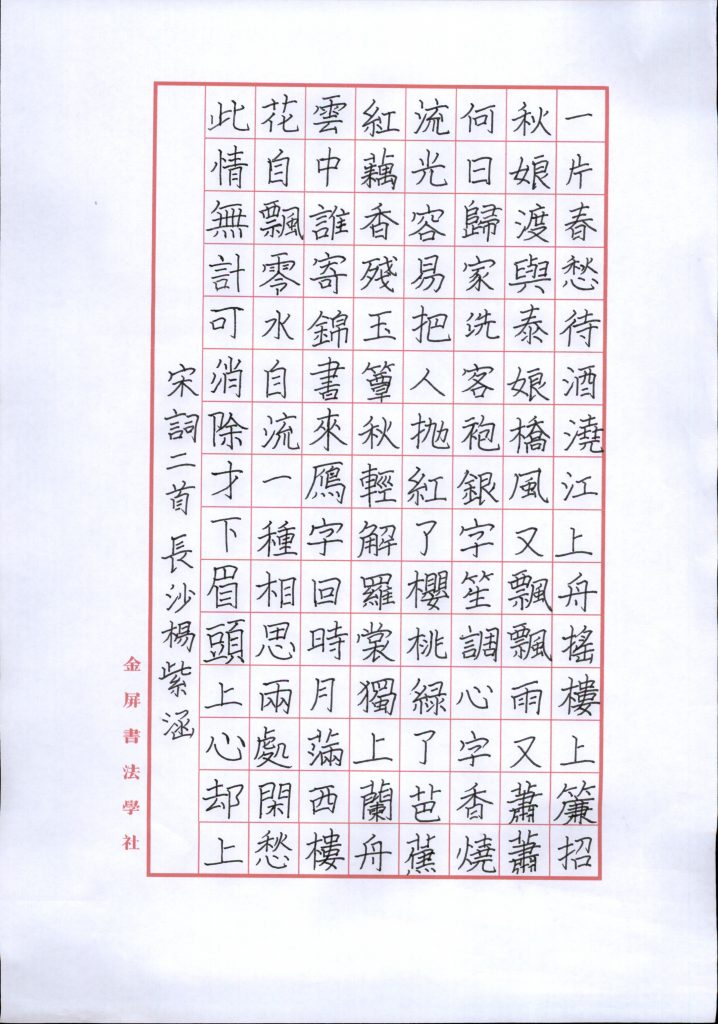 一片春愁待酒澆江上舟搖樓上簾招
秋娘渡與泰娘橋風又飄飄雨又蕭蕭
何日歸家洗客袍銀字笙調心字香燒
流光容易把人拋紅了櫻桃綠了芭蕉
紅藕香殘玉簟秋輕解羅裳獨上蘭舟
雲中誰寄錦書來鴈字回時月滿西樓
花自飄零水自流一種相思兩處閑愁
此情無計可消除才下眉頭上心却上
宋詞二首 長沙楊紫涵
金屏書法學社